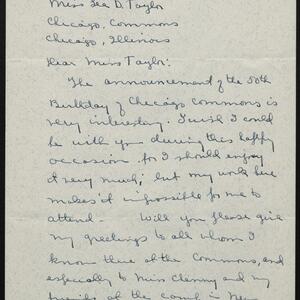 Miss Lea D. Taylor
Chicago, Commons
Chicago, Illinois
Dear Miss Taylor:
The announcement of the 50th
Birthday of Chicago Commons is
very interesting. I wish I could
be with you during this happy
occasion for I should enjoy
it very much; but my work here
makes it impossible for me to
attend. Will you please give
my greetings to all whom I
know there at the Commons, and
especially to Miss and my
friends of the camp in New